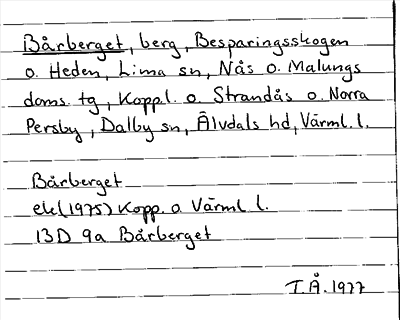 Bårberget, berg, Besparingsskogen
o. Heden, Lima sn, Nås o. Malungs
doms. tg, Kopp. l. o. Strandås o. Norra
Persby, Dalby sn, Älvdals hd, Värml. l.
Bårberget
ek (1975) Kopp. o. Värml. l.
13D 9a Bårberget
T.Å. 1977